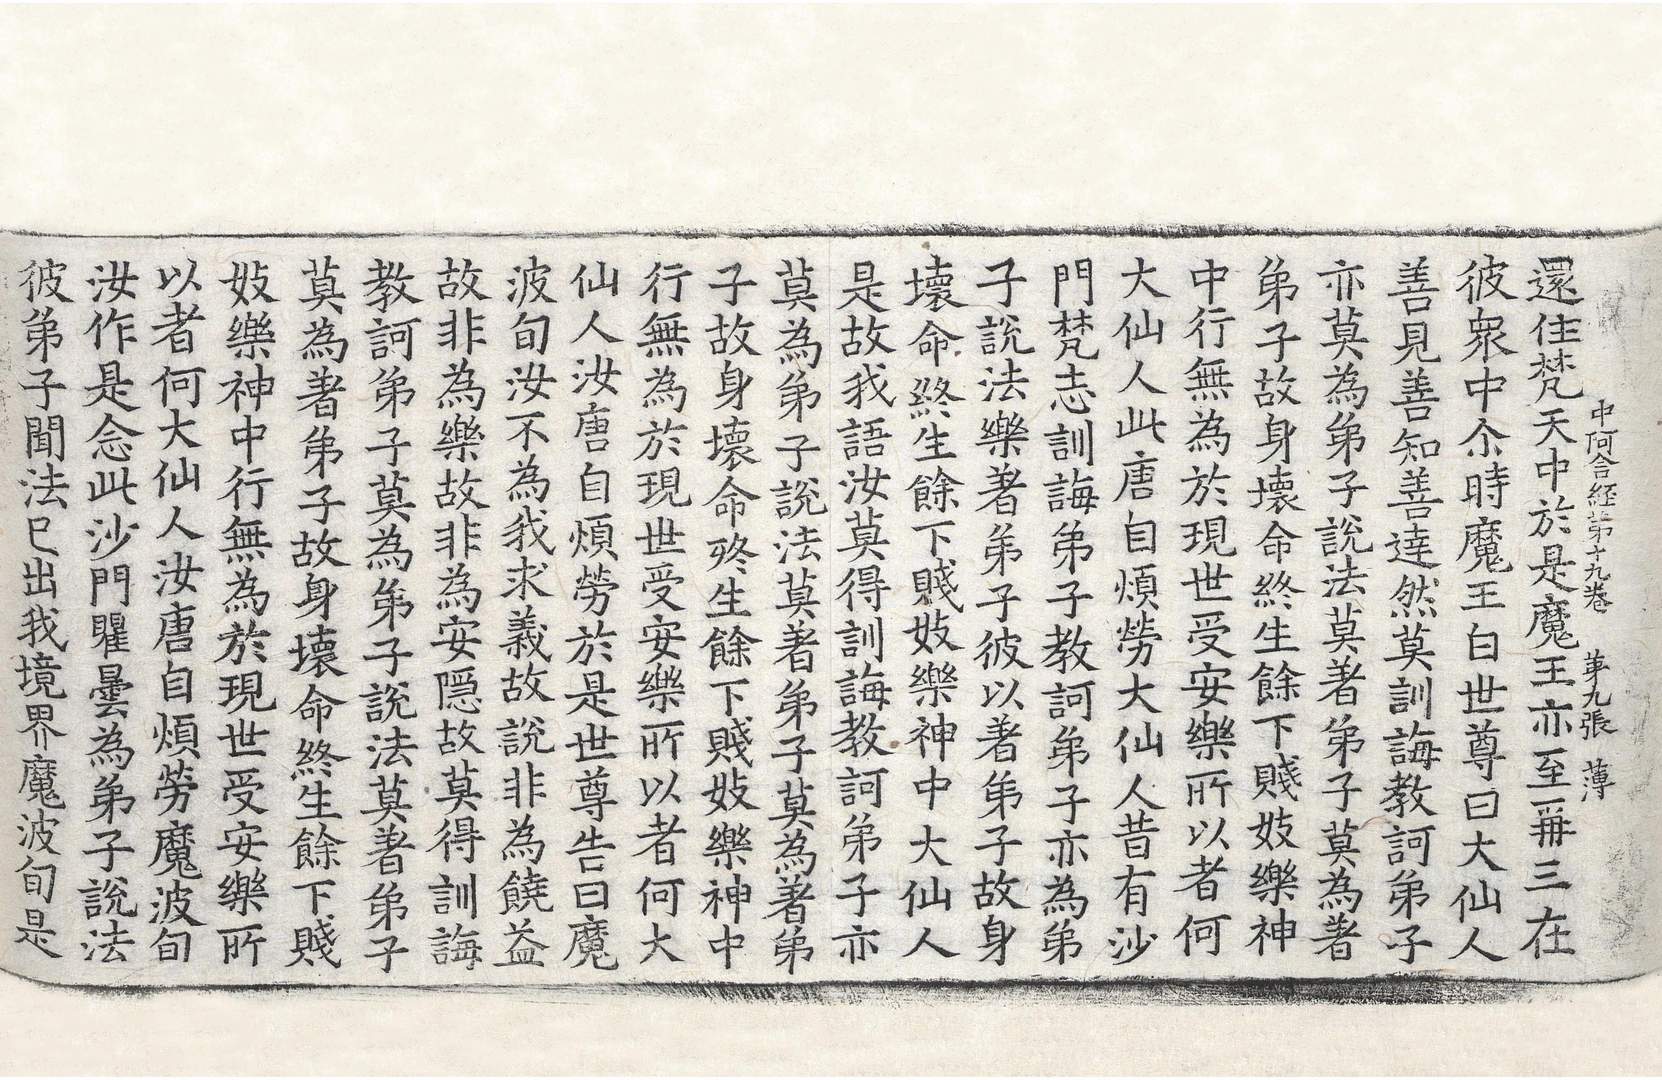 中阿含経第十九巻　第九張　薄
還住梵天中於是魔王亦至再三在
彼衆中尒時魔王白世尊曰大仙人
善見善知善達然莫訓誨教訶弟子
亦莫為弟子說法莫著弟子莫為著
弟子故身壞命終生餘下賤妓樂神
中行無為於現世受安樂所以者何
大仙人此唐自煩勞大仙人昔有沙
門梵志訓誨弟子教訶弟子亦為弟
子說法樂著弟子彼以著弟子故身
壞命終生餘下賤妓樂神中大仙人
是故我語汝莫得訓誨教訶弟子亦
莫為弟子說法莫著弟子莫為著弟
子故身壞命終生餘下賤妓樂神中
行無為於現世受安樂所以者何大
仙人汝唐自煩勞於是世尊告曰魔
波旬汝不為我求義故說非為饒益
故非為樂故非為安隠故莫得訓誨
教訶弟子莫為弟子說法莫著弟子
莫為著弟子故身壞命終生餘下賤
妓樂神中行無為於現世受安樂所
以者何大仙人汝唐自煩勞魔波旬
汝作是念此沙門瞿曇為弟子說法
彼弟子聞法已出我境界魔波旬是